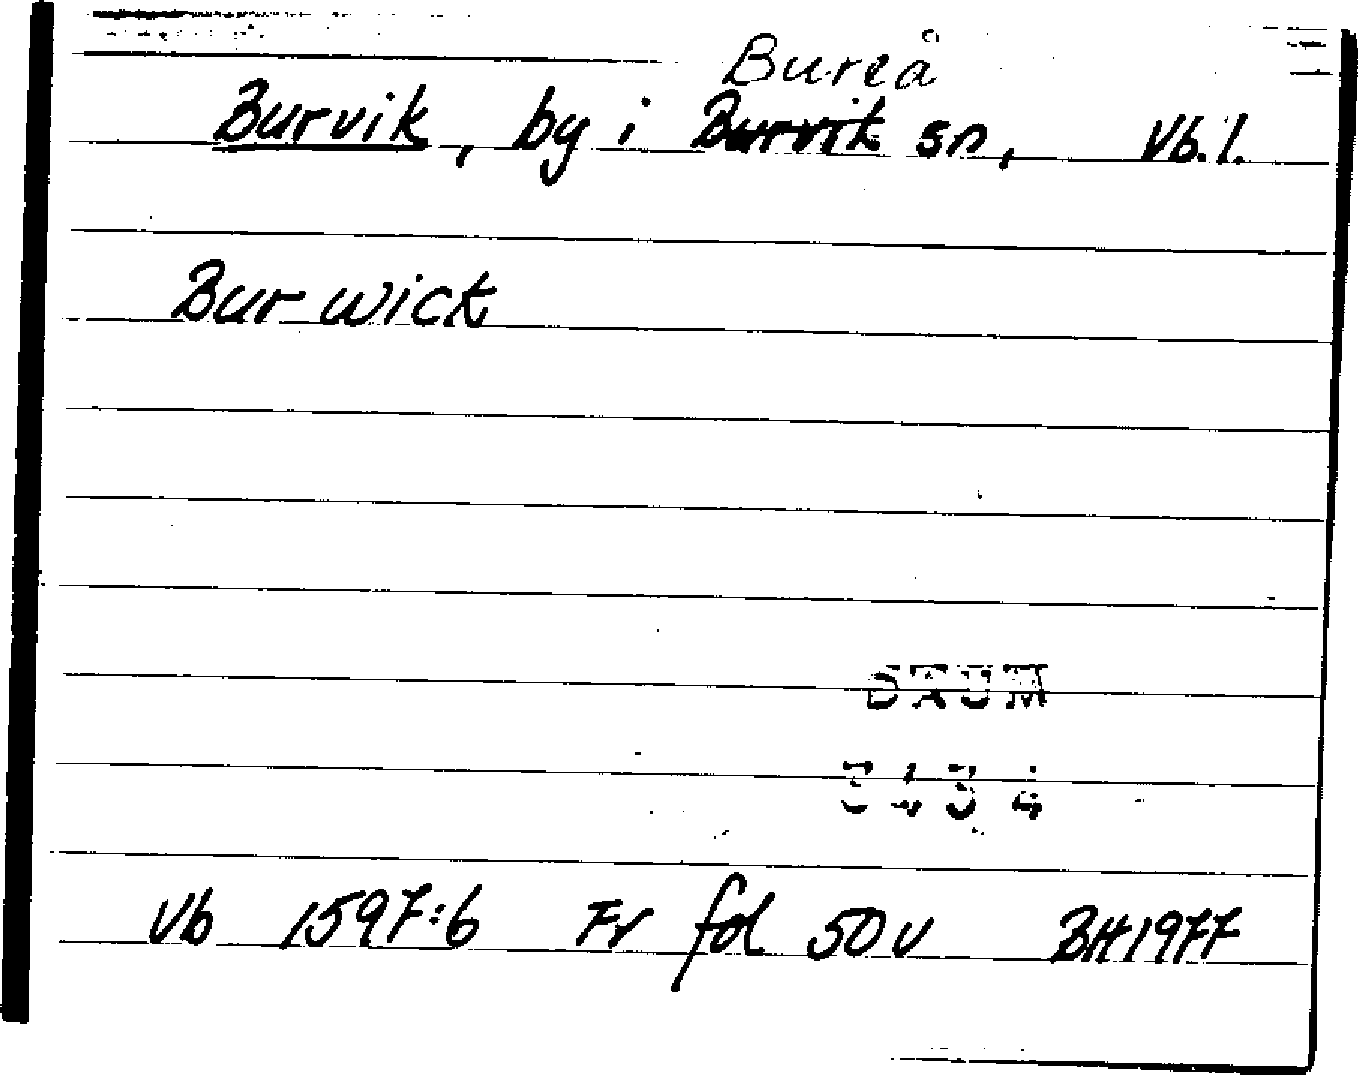 Bureå
Burvik, by i Burvik sn, Vb. l.
Burwick
DAUM
3434
Vb 1597:6 Fr fol 50 v BH 1977